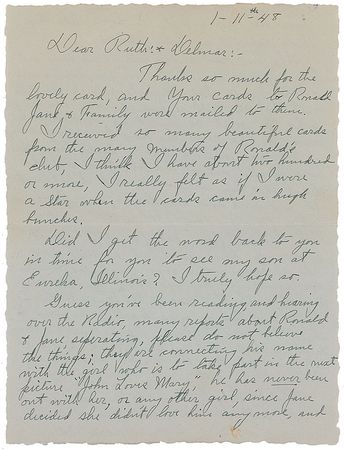 1-11th-48
Dear Ruth:+ Delmar:-
Thanks so much for the
lovely card, and Your cards to Ronald
Jane & Family were mailed to them.
I received so many beautiful cards
from the many members of Ronald's
club, I think I have about two hundred
or more, I really felt as if I were
a Star when the cards came in hugh
bunches.
Did I get the word back to you
in time for you to see my son at
Eureka, Illinois? I truly hope so.
Guess you've been reading and hearing
over the Radio, many reports about Ronald
& Jane seperating, please do not believe
the things, they are connecting his name
with the girl who is to take part in the next
picture "John Loves Mary" he has never been
out with her, or any other girl, since Jane
decided she didn't love him anymore, and